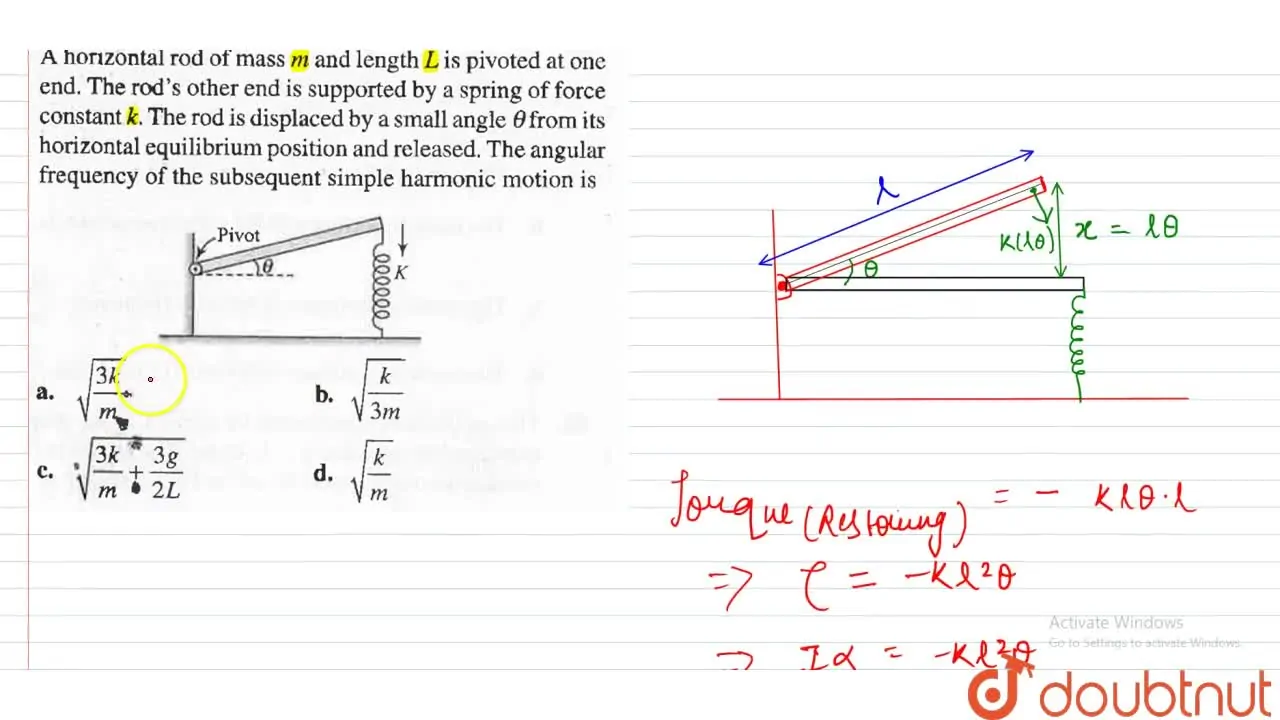 A horizontal rod of mass m and length L is pivoted at one
end. The rod's other end is supported by a spring of force
constant k. The rod is displaced by a small angle θ from its
horizontal equilibrium position and released. The angular
frequency of the subsequent simple harmonic motion is
Pivot
θ
K
a. √(3k/m)
b. √(k/3m)
c. √(3k/m + 3g/2L)
d. √(k/m)
l
K(lθ)
x = lθ
θ
Torque (Restoring) = - Klθ.l
=> τ = -Kl²θ
=> Iα = -Kl²θ
Activate Windows
Go to Settings to activate Windows.
doubtnut